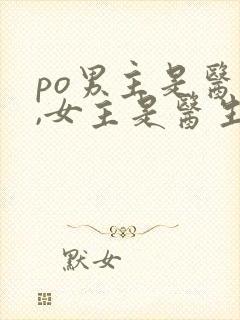 po男主是醫
,女主是醫生
默女